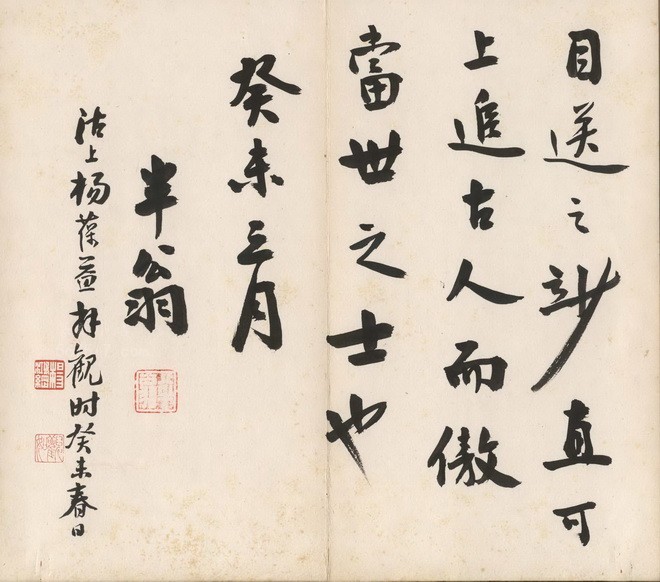 目送之妙直可
上追古人而傲
當世之士也
癸未三月
半翁
沽上楊葆益拜觀时癸未春日